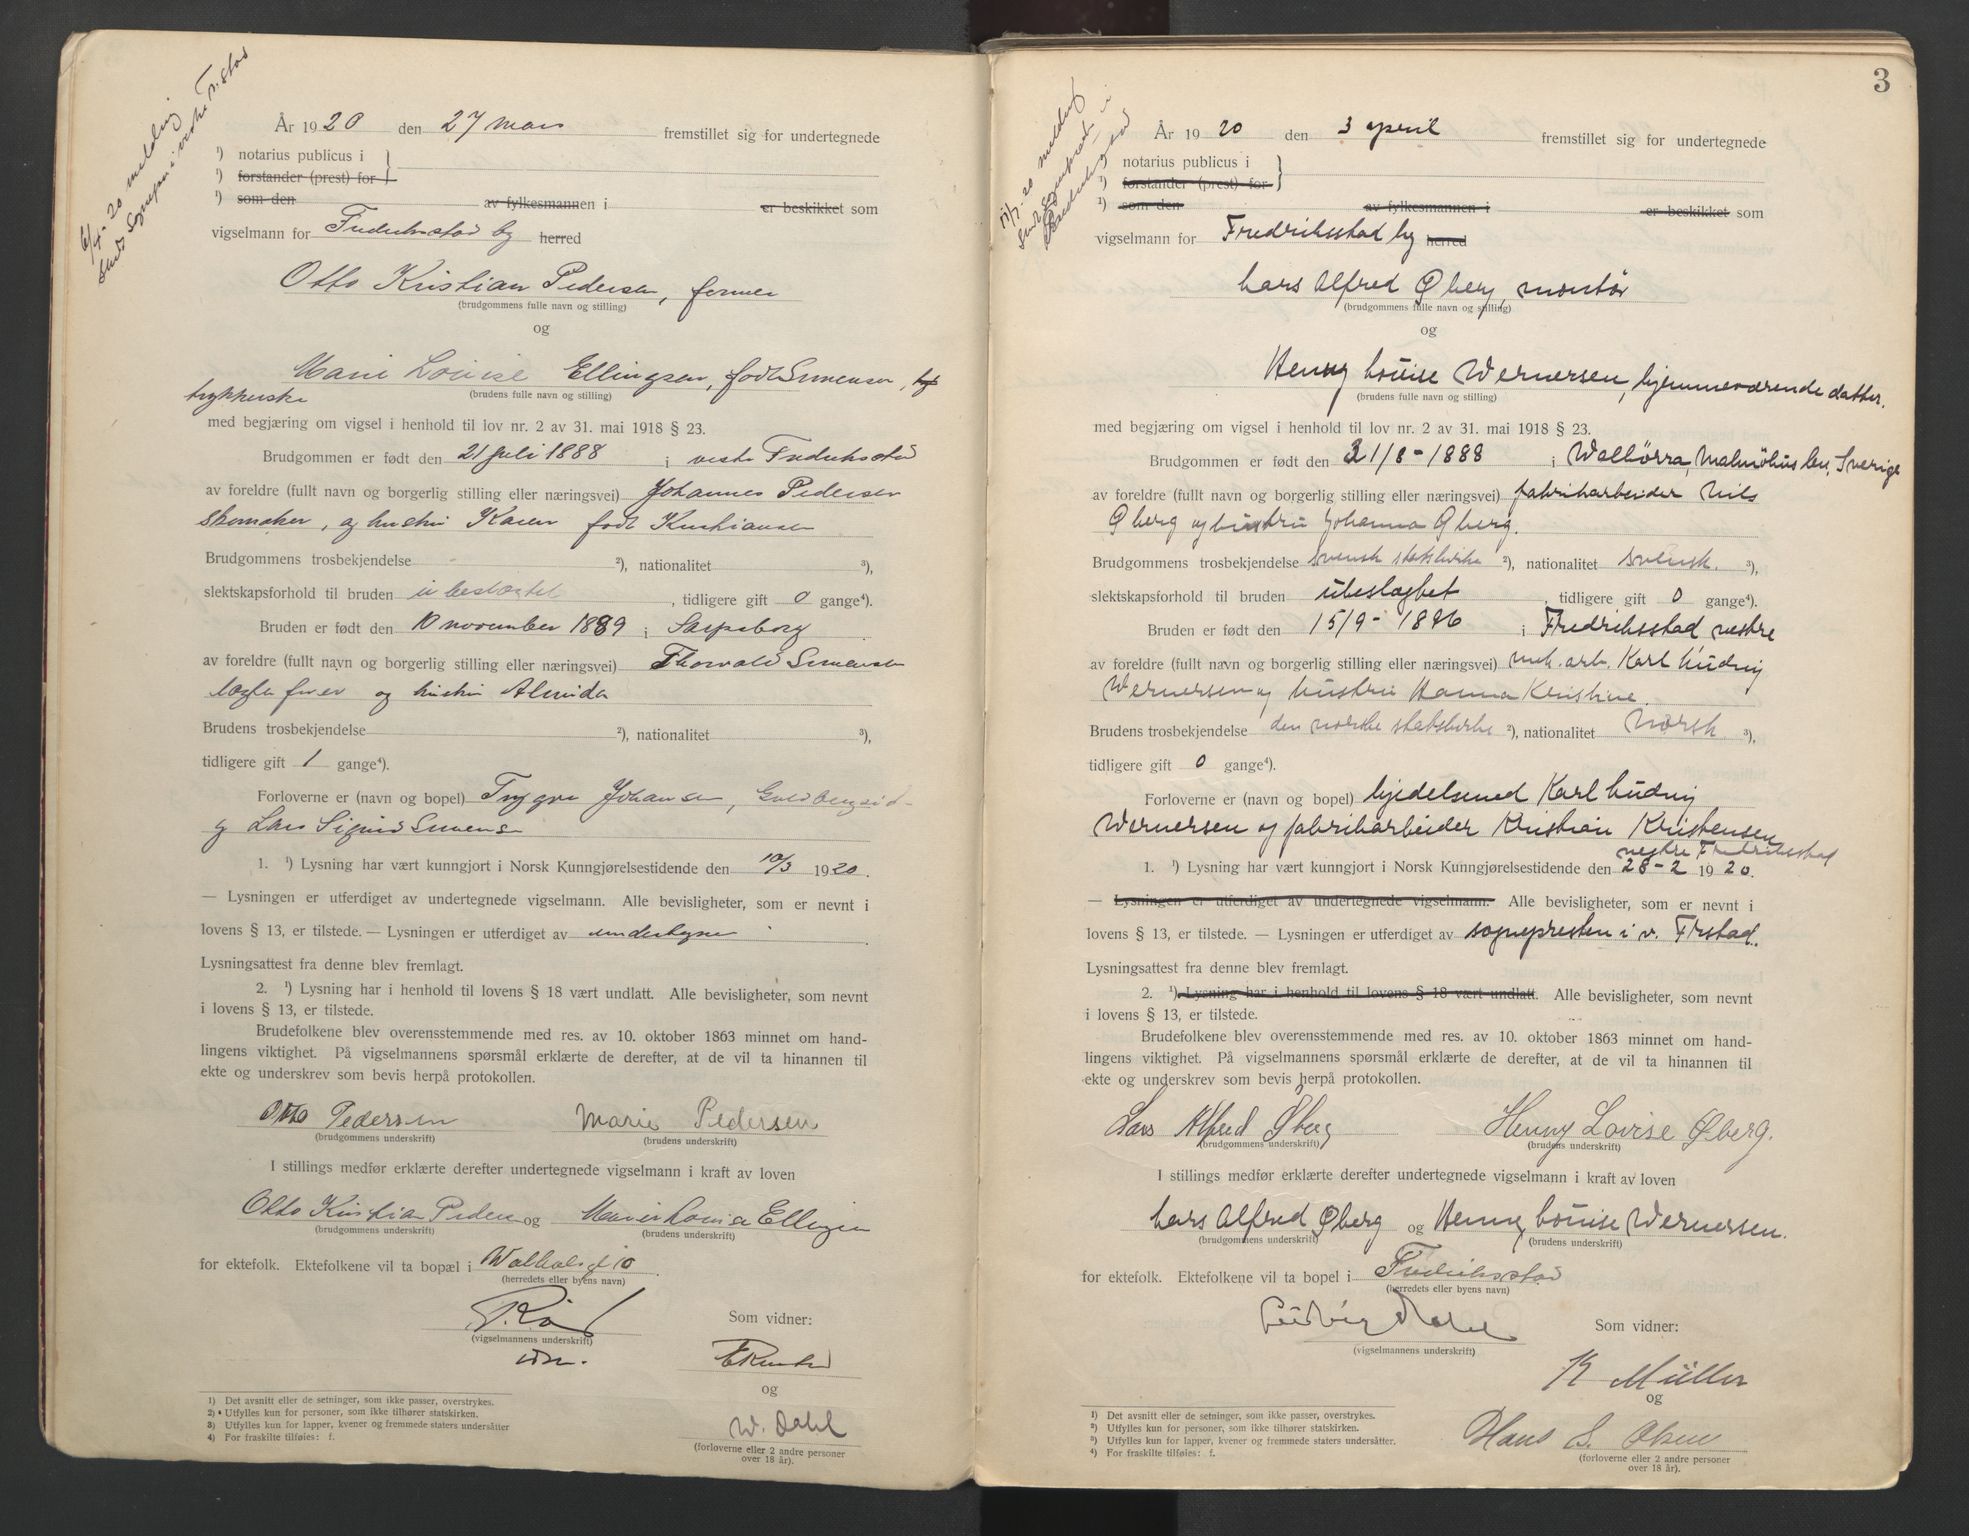 6/4-20 melding
sendt Sognepri
År 1920 den 27 mars fremstillet sig for undertegnede
¹) notarius publicus i
¹) forstander (prest) for
¹) som den av fylkesmannen i er beskikket som
vigselmann for Fredriksstad by herred
Otto Kristian Pedersen, former
(brudgommens fulle navn og stilling)
og
Marie Louise Ellingsen, født Simensen,
trykkerske
(brudens fulle navn og stilling)
med begjæring om vigsel i henhold til lov nr. 2 av 31. mai 1918 § 23.
Brudgommen er født den 21 juli 1888 i vestre Fredriksstad
av foreldre (fullt navn og borgerlig stilling eller næringsvei) Johannes Pedersen
skomaker, og hustru Karen født Kristiansen
Brudgommens trosbekjendelse - ²), nationalitet ³),
slektskapsforhold til bruden ubeslægtet, tidligere gift 0 gange⁴).
Bruden er født den 10 november 1889 i Sarpsborg
av foreldre (fullt navn og borgerlig stilling eller næringsvei) Thorvald Simensen
og hustru Alvida
Brudens trosbekjendelse ²), nationalitet ³),
tidligere gift 1 gange⁴).
Forloverne er (navn og bopel) Trygve Johansen,
og Lars Sigurd Simensen
1. ¹) Lysning har vært kunngjort i Norsk Kunngjørelsestidende den 10/3 1920.
— Lysningen er utferdiget av undertegnede vigselmann. Alle bevisligheter, som er nevnt i
lovens § 13, er tilstede. — Lysningen er utferdiget av undertegnede
Lysningsattest fra denne blev fremlagt.
2. ¹) Lysning har i henhold til lovens § 18 vært undlatt. Alle bevisligheter, som nevnt
i lovens § 13, er tilstede.
Brudefolkene blev overensstemmende med res. av 10. oktober 1863 minnet om hand-
lingens viktighet. På vigselmannens spørsmål erklærte de derefter, at de vil ta hinannen til
ekte og underskrev som bevis herpå protokollen.
Otto Pedersen Marie Pedersen
(brudgommens underskrift) (brudens underskrift)
I stillings medfør erklærte derefter undertegnede vigselmann i kraft av loven
Otto Kristian Pedersen og Marie Louise Ellingsen
(brudgommens underskrift) (brudens underskrift)
for ektefolk. Ektefolkene vil ta bopæl i
(herredets eller byens navn)
(vigselmannens underskrift)
Som vidner:
og
W. Dahl
(forloverne eller 2 andre personer
over 18 år).
1) Det avsnitt eller de setninger, som ikke passer, overstrykes.
2) Utfylles kun for personer, som ikke tilhører statskirken.
3) Utfylles kun for lapper, kvener og fremmede staters undersåtter
4) For fraskilte tilføies: f.
3
20 melding
sendt Sognepresten i
Fredriksstad
År 1920 den 3 april fremstillet sig for undertegnede
¹) notarius publicus i
¹) forstander (prest) for
¹) som den av fylkesmannen i er beskikket som
vigselmann for Fredriksstad by herred
Lars Alfred Øberg, montør
(brudgommens fulle navn og stilling)
og
Henny Louise Wernersen, hjemmeværende datter.
(brudens fulle navn og stilling)
med begjæring om vigsel i henhold til lov nr. 2 av 31. mai 1918 § 23.
Brudgommen er født den 21/8-1888 i Wallörra, Malmöhus len, Sverige
av foreldre (fullt navn og borgerlig stilling eller næringsvei) fabrikarbeider Nils
Øberg og hustru Johanna Øberg.
Brudgommens trosbekjendelse svensk statskirke ²), nationalitet svensk. ³),
slektskapsforhold til bruden ubeslægtet, tidligere gift 0 gange⁴).
Bruden er født den 15/9-1896 i Fredriksstad vestre
av foreldre (fullt navn og borgerlig stilling eller næringsvei) mek. arb. Karl Ludvig
Wernersen og hustru Hanna Kristine.
Brudens trosbekjendelse den norske statskirke ²), nationalitet Norsk ³),
tidligere gift 0 gange⁴).
Forloverne er (navn og bopel) hjelpsmed Karl Ludvig
Wernersen og fabrikarbeider Kristian Kristensen
vestre Fredriksstad
1. ¹) Lysning har vært kunngjort i Norsk Kunngjørelsestidende den 28-2 1920.
— Lysningen er utferdiget av undertegnede vigselmann. Alle bevisligheter, som er nevnt i
lovens § 13, er tilstede. — Lysningen er utferdiget av sognepresten i v. Frstad.
Lysningsattest fra denne blev fremlagt.
2. ¹) Lysning har i henhold til lovens § 18 vært undlatt. Alle bevisligheter, som nevnt
i lovens § 13, er tilstede.
Brudefolkene blev overensstemmende med res. av 10. oktober 1863 minnet om hand-
lingens viktighet. På vigselmannens spørsmål erklærte de derefter, at de vil ta hinannen til
ekte og underskrev som bevis herpå protokollen.
Lars Alfred Øberg Henny Lovise Øberg.
(brudgommens underskrift) (brudens underskrift)
I stillings medfør erklærte derefter undertegnede vigselmann i kraft av loven
Lars Alfred Øberg og Henny Louise Wernersen.
(brudgommens underskrift) (brudens underskrift)
for ektefolk. Ektefolkene vil ta bopel i Fredriksstad
(herredets eller byens navn)
Ludvig
(vigselmannens underskrift)
Som vidner:
K Müller
og
Hans S. Olsen
(forloverne eller 2 andre personer
over 18 år).
1) Det avsnitt eller de setninger, som ikke passer, overstrykes.
2) Utfylles kun for personer, som ikke tilhører statskirken.
3) Utfylles kun for lapper, kvener og fremmede staters undersåtter.
4) For fraskilte tilføies: f.